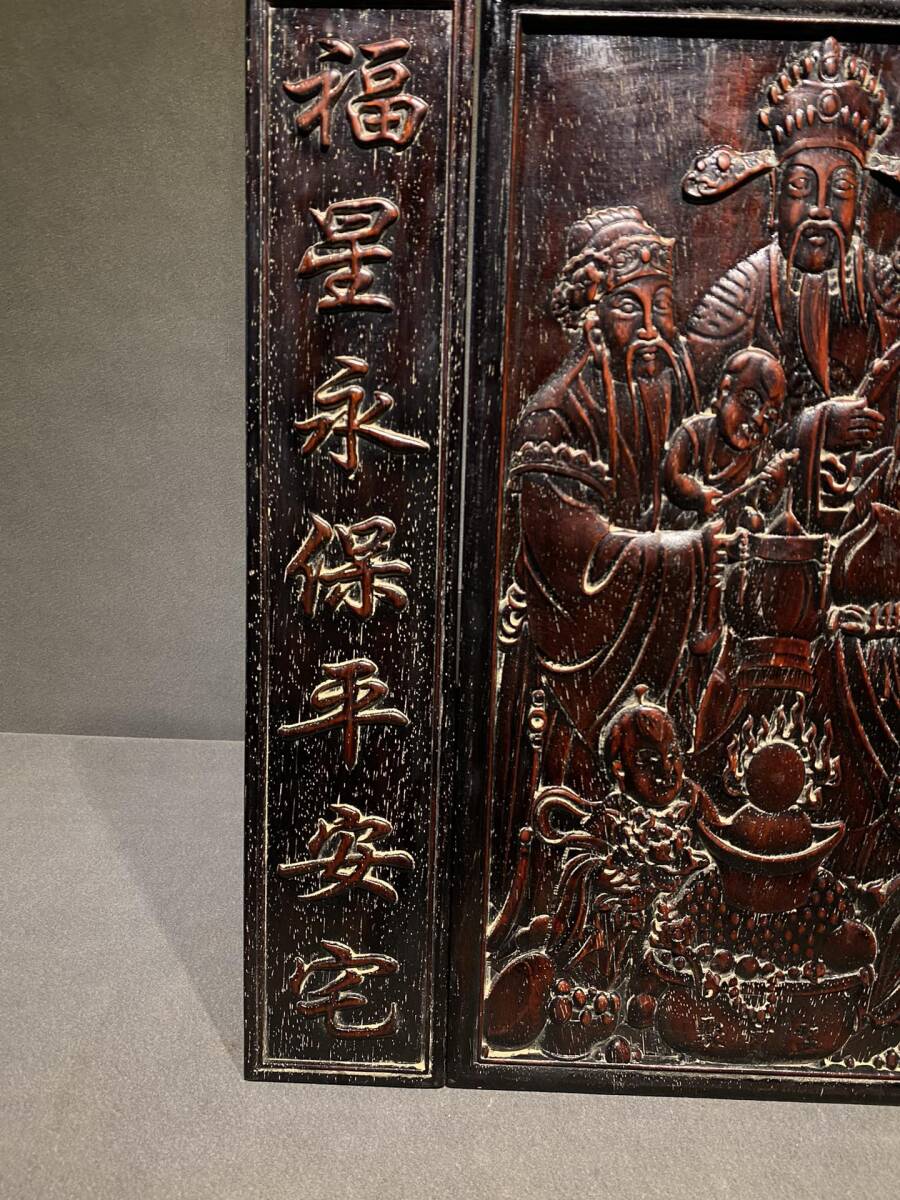 福星永保平安宅